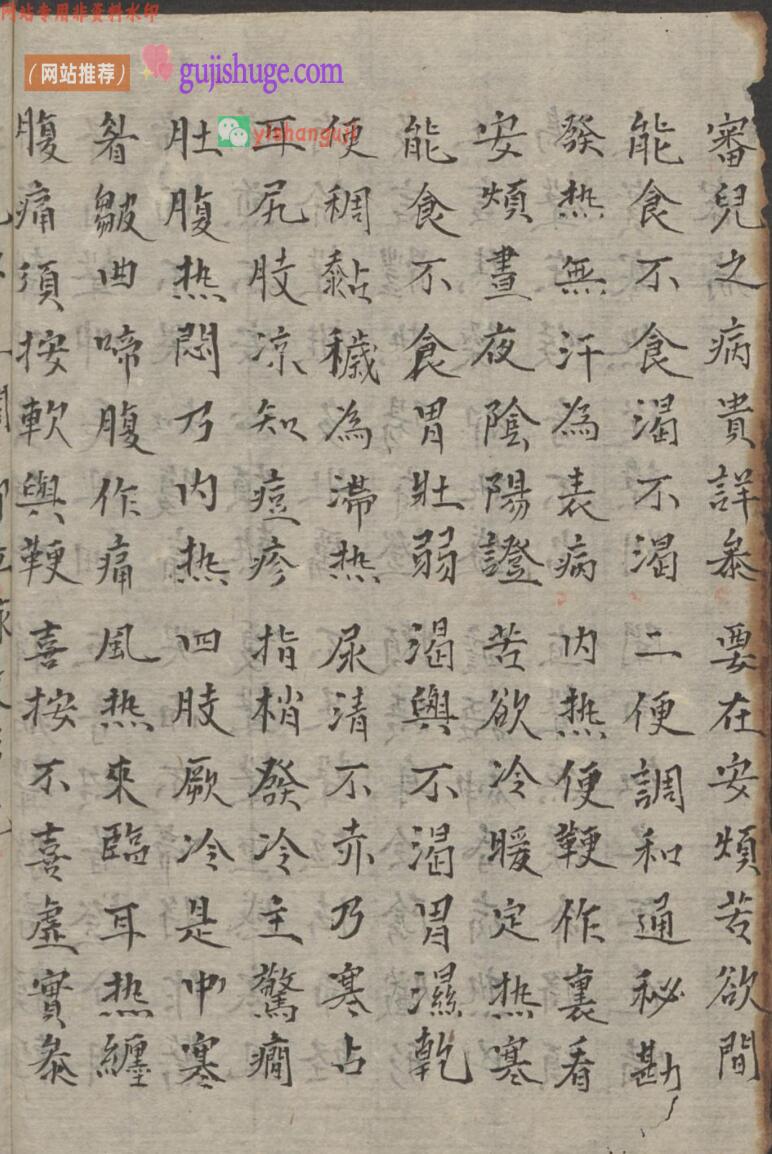 网站专用非资料水印
（网站推荐）
gujishuge.com
yishanguji
審兒之病貴詳叅 要在安煩苦欲間
能食不食渴不渴 二便調和通秘勘
發热無汗為表病 内热便鞕作裏看
安煩晝夜陰陽證 苦欲冷暖定热寒
能食不食胃壯弱 渴與不渴胃濕乾
便稠黏穢為滯热 尿清不赤乃寒占
耳尻肢凉知痘疹 指梢發冷主驚癇
肚腹热悶乃内热 四肢厥冷是中寒
眉皺曲啼腹作痛 風热來臨耳热纏
腹痛須按軟與鞕 喜按不喜虛實叅